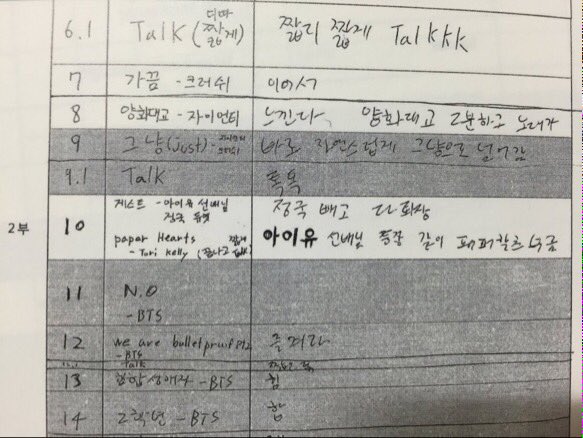 6.1 Talk (디따 짧게) 짧디 짧게 Talkkk
7 가끔 - 크러쉬 이어서
8 양화대교 - 자이언티 느낀다. 양화대교 2분하고 노래가
9 그냥(Just) - 바로 자연스럽게 그냥으로 넘어감
9.1 Talk 톡톡
2부
10 게스트 - 아이유 선배님 정국 빼고 다 퇴장
정국 듀엣
paper Hearts 짧게 아이유 선배님 등장 같이 페퍼할츠 부름
- Tori Kelly (끝나고 talk)
11 N.O
- BTS
12 we are bulletproof pt2 즐겨라
- BTS
Talk
13 힙합성애자 - BTS 힙
14 2학년 - BTS 합